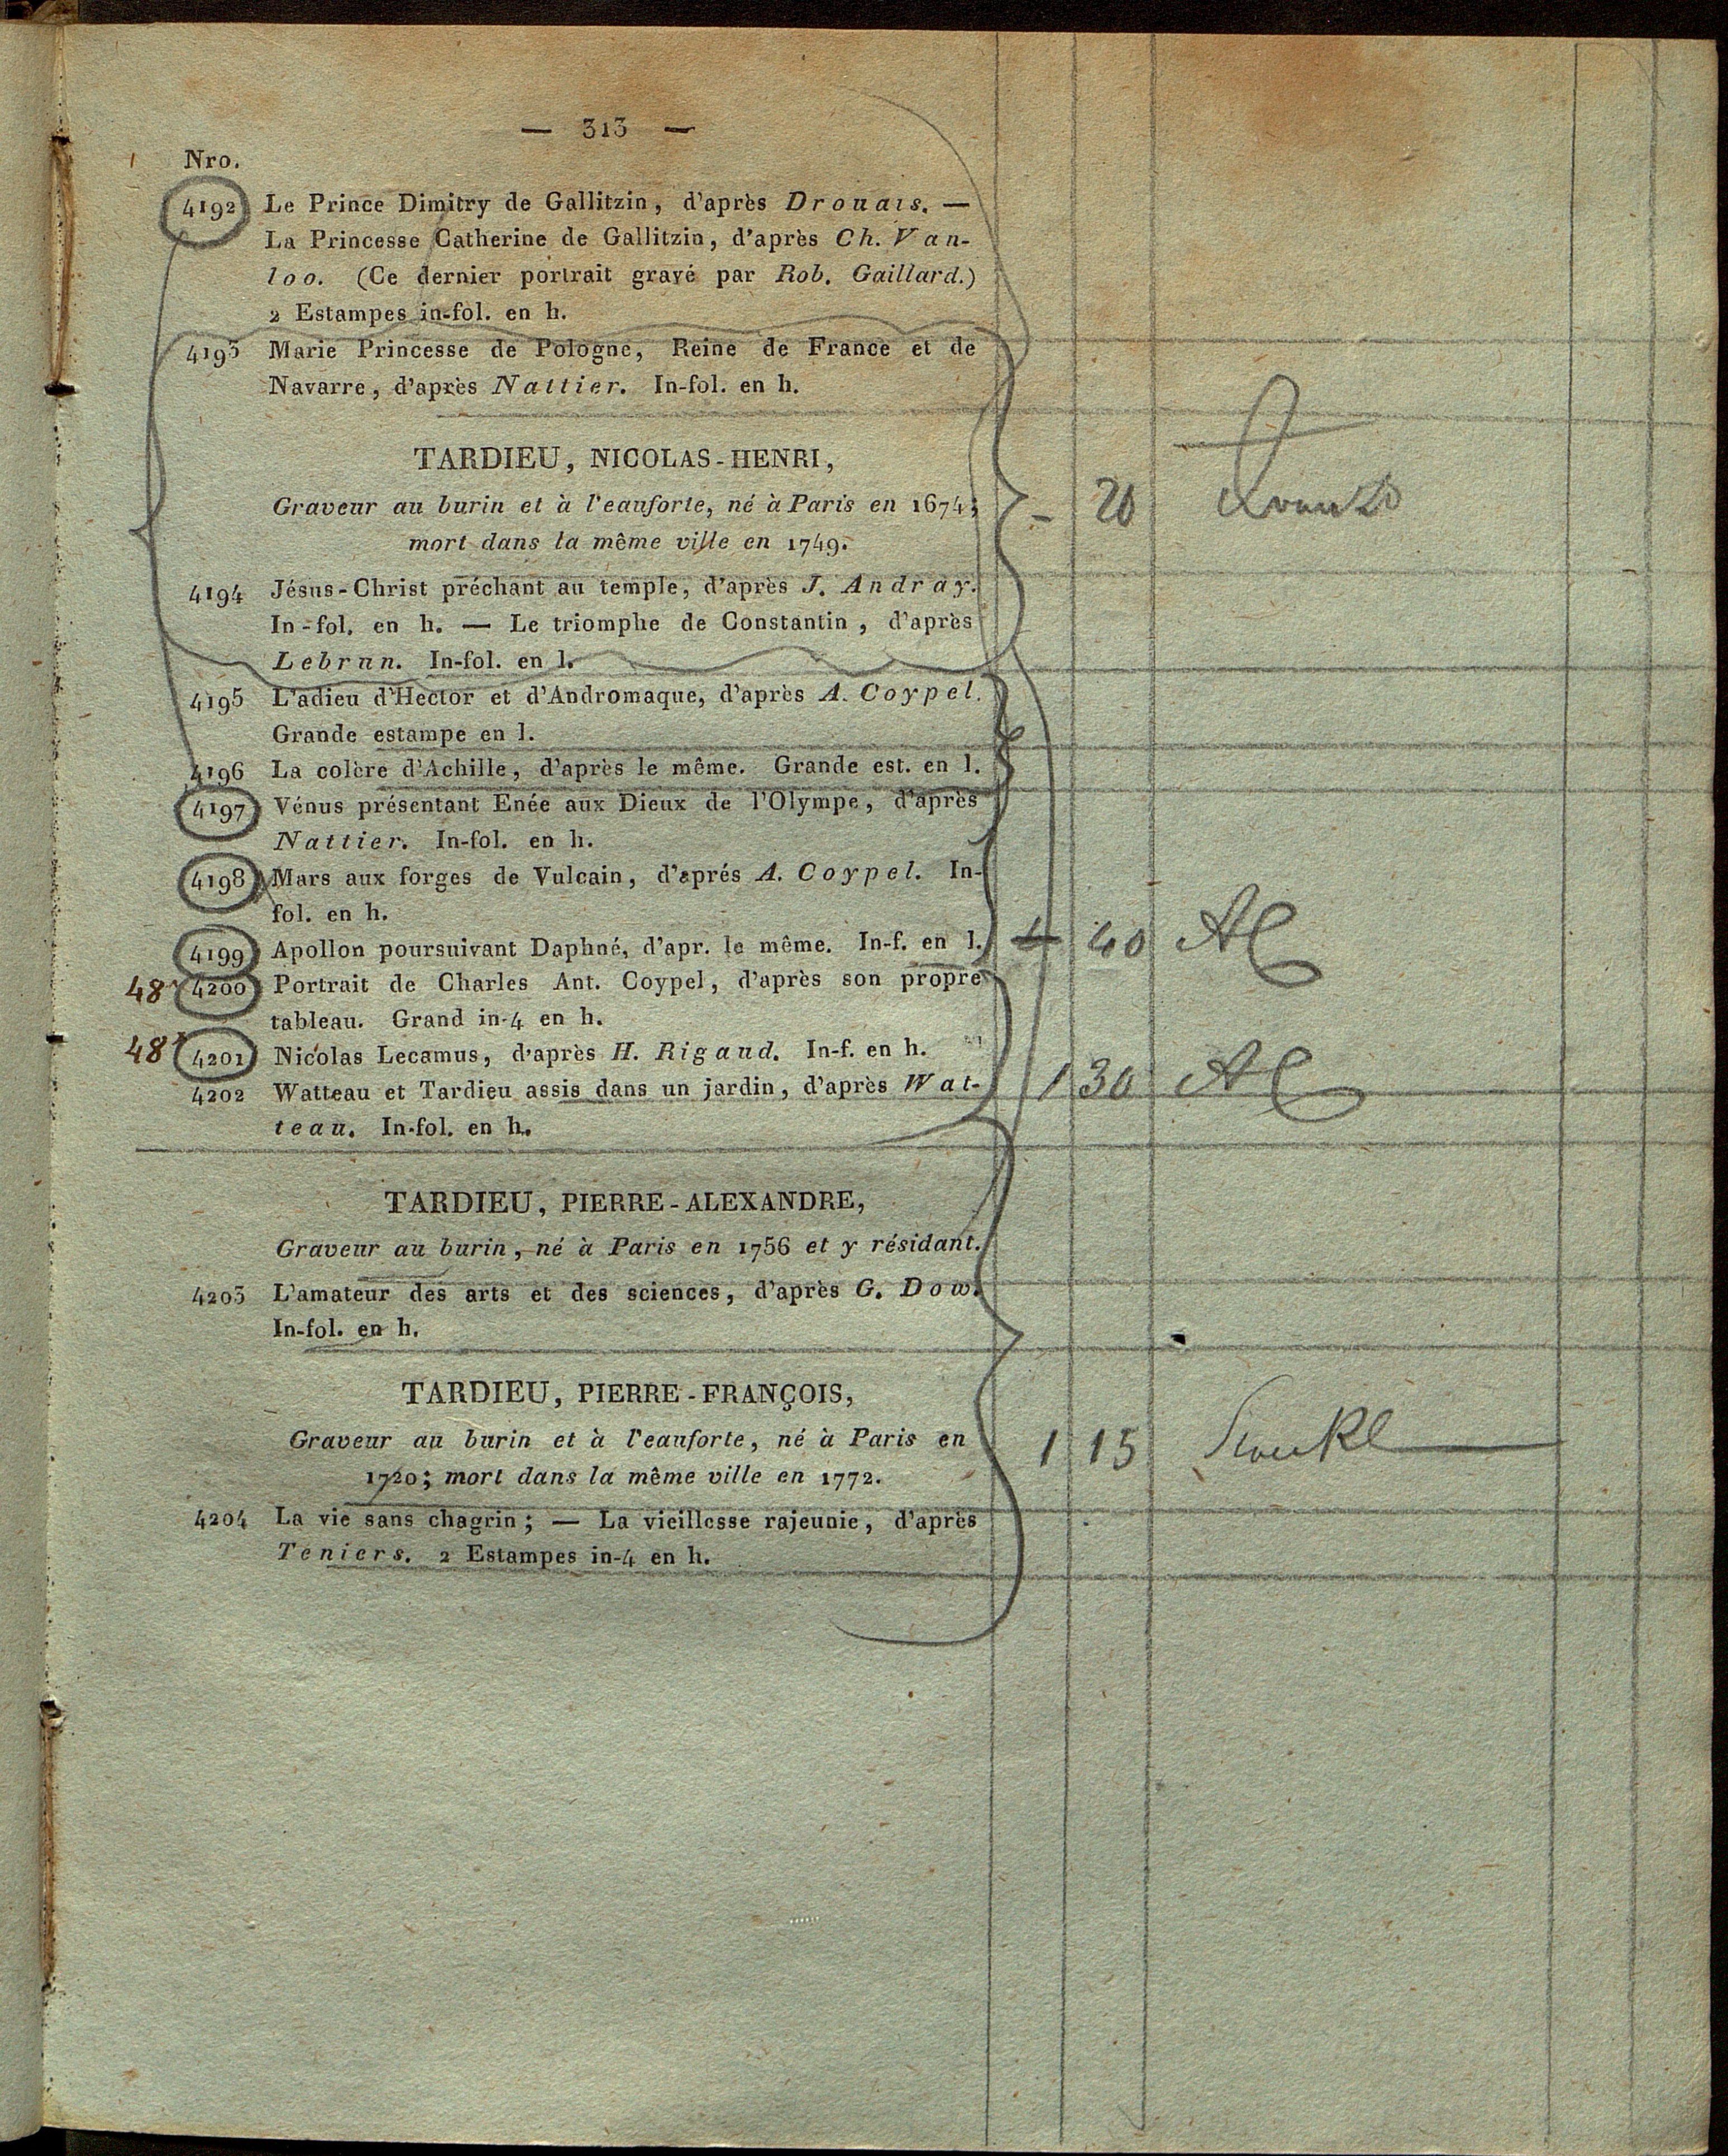 — 313 —
Nro.
4192 Le Prince Dimitry de Gallitzin, d'après Drouais. —
La Princesse Catherine de Gallitzin, d'après Ch. Van-
loo. (Ce dernier portrait gravé par Rob. Gaillard.)
2 Estampes in-fol. en h.
4193 Marie Princesse de Pologne, Reine de France et de
Navarre, d'après Nattier. In-fol. en h.
TARDIEU, NICOLAS-HENRI,
Graveur au burin et à l'eauforte, né à Paris en 1674;
mort dans la même ville en 1749.
– 20
4194 Jésus-Christ préchant au temple, d'après J. Andray.
In-fol. en h. — Le triomphe de Constantin, d'après
Lebrun. In-fol. en l.
4195 L'adieu d'Hector et d'Andromaque, d'après A. Coypel.
Grande estampe en l.
4196 La colère d'Achille, d'après le même. Grande est. en l.
4197 Vénus présentant Enée aux Dieux de l'Olympe, d'après
Nattier. In-fol. en h.
4198 Mars aux forges de Vulcain, d'aprés A. Coypel. In-
fol. en h.
4199 Apollon poursuivant Daphné, d'apr. le même. In-f. en l. 40
48 4200 Portrait de Charles Ant. Coypel, d'après son propre
tableau. Grand in-4 en h.
48 4201 Nicolas Lecamus, d'après H. Rigaud. In-f. en h.
4202 Watteau et Tardieu assis dans un jardin, d'après Wat- 1 30
teau. In-fol. en h.
TARDIEU, PIERRE-ALEXANDRE,
Graveur au burin, né à Paris en 1756 et y résidant.
4203 L'amateur des arts et des sciences, d'après G. Dow.
In-fol. en h.
TARDIEU, PIERRE-FRANÇOIS,
Graveur au burin et à l'eauforte, né à Paris en 1 15
1720; mort dans la même ville en 1772.
4204 La vie sans chagrin; — La vieillesse rajeunie, d'après
Téniers. 2 Estampes in-4 en h.